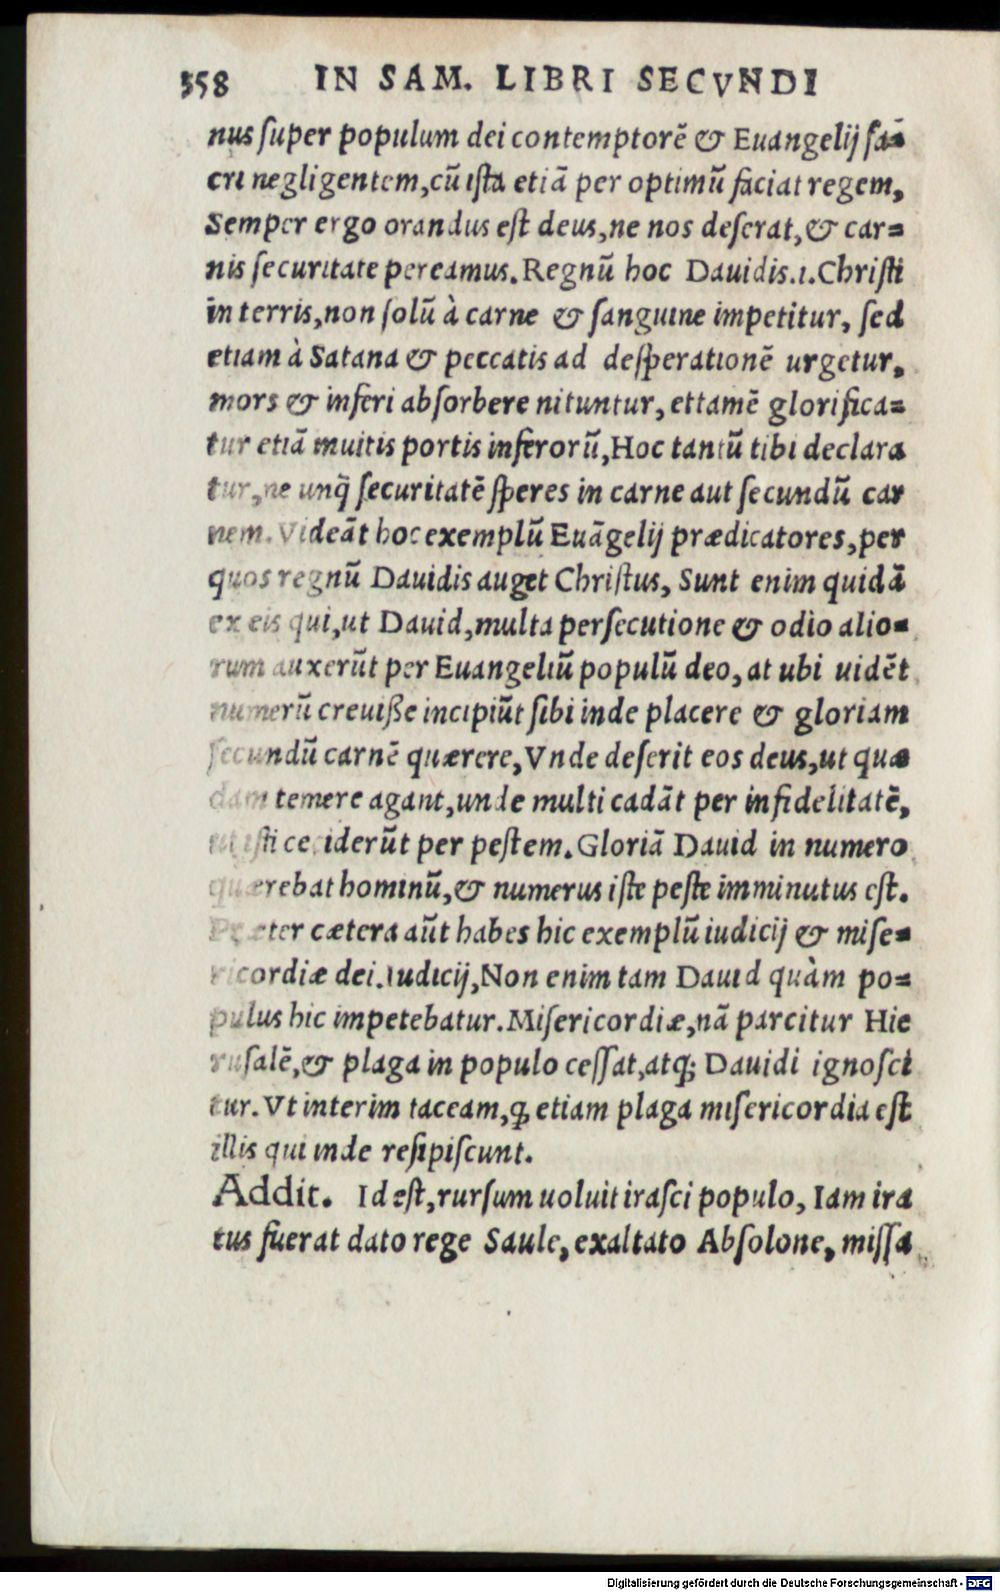 358 IN SAM. LIBRI SECVNDI
nus ſuper populum dei contemptorē & Euangelij ſa=
cri negligentem,cū iſta etiā per optimū faciat regem,
Semper ergo orandus eſt deus,ne nos deſerat,& car=
nis ſecuritate pereamus.Regnū hoc Dauidis.i.Chriſti
in terris,non ſolū à carne & ſanguine impetitur, ſed
etiam à Satana & peccatis ad deſperationē urgetur,
mors & inferi abſorbere nituntur, ettamē glorifica=
tur etiā muitis portis inferorū,Hoc tantū tibi declara
tur,ne unq̃ ſecuritatē ſperes in carne aut ſecundū car
nem.Videāt hoc exemplū Euāgelij prædicatores,per
quos regnū Dauidis auget Chriſtus, Sunt enim quidā
ex eis qui,ut Dauid,multa perſecutione & odio alio=
rum auxerūt per Euangeliū populū deo, at ubi uidēt
numerū creuiße incipiūt ſibi inde placere & gloriam
ſecundū carnē quærere,Vnde deſerit eos deus,ut quæ
dam temere agant,unde multi cadāt per infidelitatē,
ut iſti ceciderūt per peſtem.Gloriā Dauid in numero
quærebat hominū,& numerus iſte peſte imminutus eſt.
Præter cætera aūt habes hic exemplū iudicij & miſe=
ricordiæ dei.Iudicij,Non enim tam Dauid quàm po=
pulus hic impetebatur.Miſericordiæ,nā parcitur Hie
ruſalē,& plaga in populo ceſſat,atq; Dauidi ignoſci
tur.Vt interim taceam,ꝙ etiam plaga miſericordia eſt
illis qui inde reſipiſcunt.
Addit. Id eſt,rurſum uoluit iraſci populo, Iam ira
tus fuerat dato rege Saule, exaltato Abſolone, miſſa
Digitalisierung gefördert durch die Deutsche Forschungsgemeinschaft - DFG